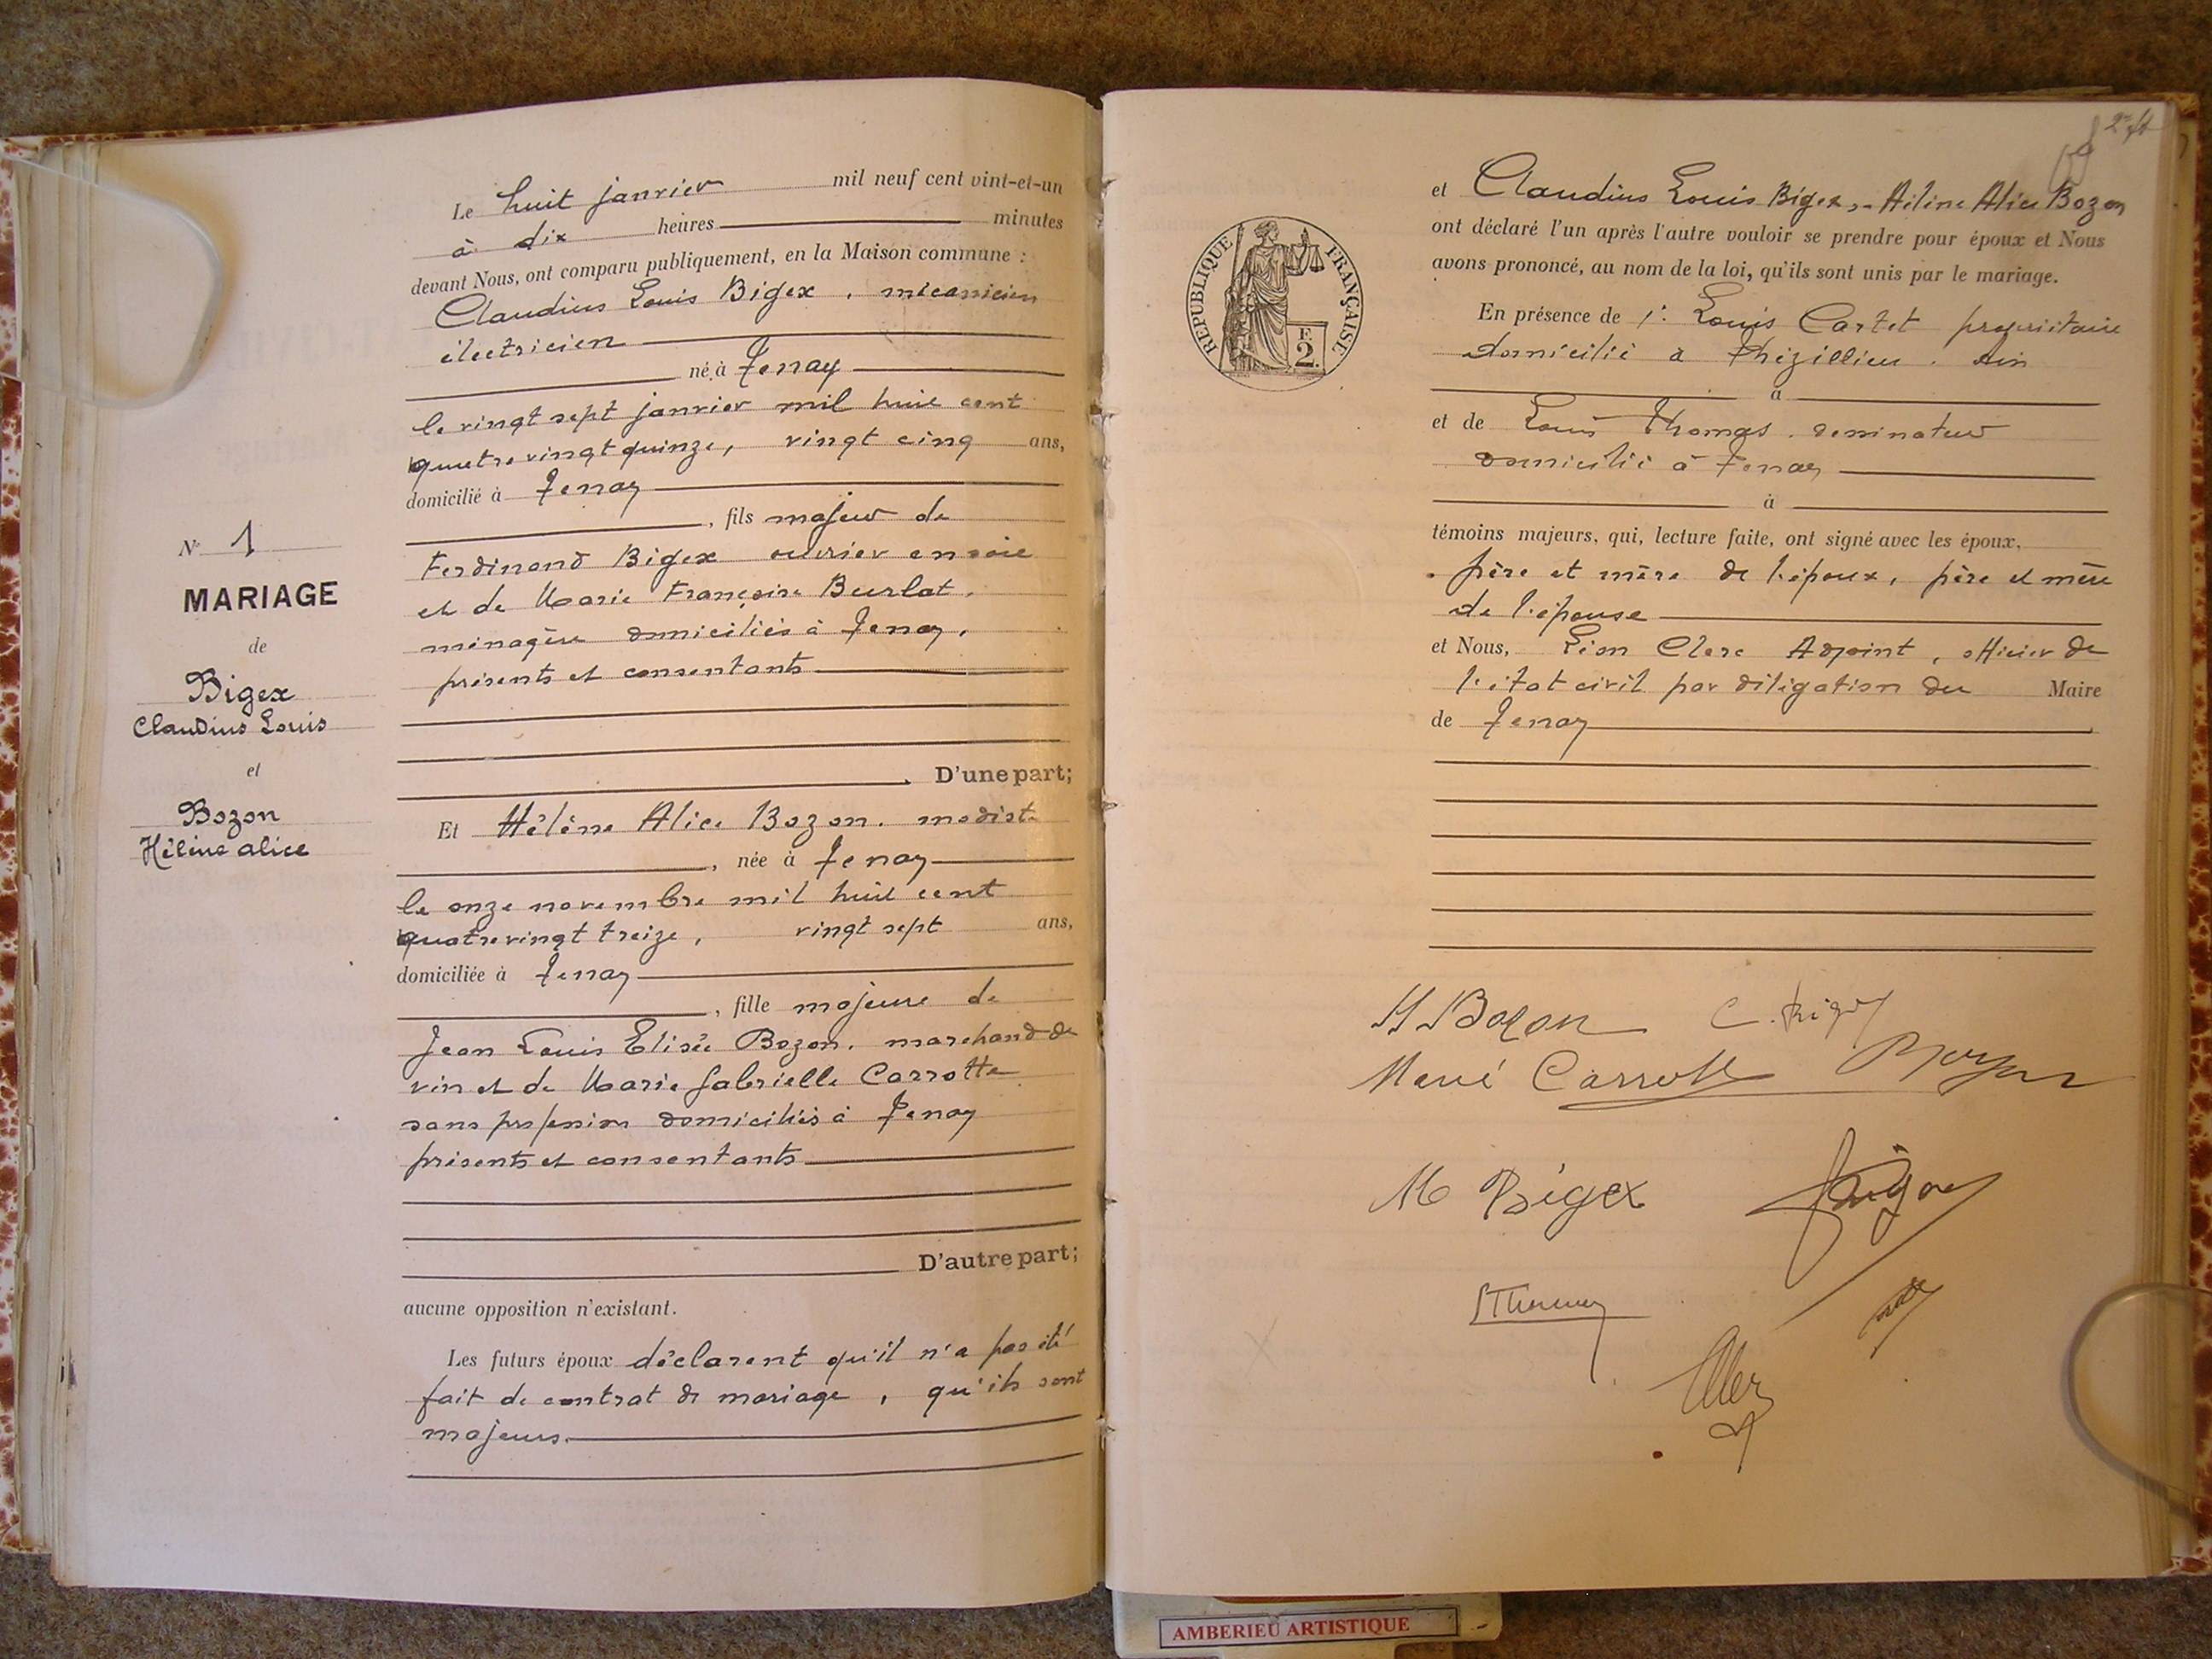 Le huit janvier mil neuf cent vint-et-un
à dix heures minutes
devant Nous, ont comparu publiquement, en la Maison commune :
Claudius Louis Bigex, mécanicien
électricien
né à Tenay
le vingt sept janvier mil huit cent
quatre vingt quinze, vingt cinq ans,
domicilié à Tenay
, fils majeur de
Ferdinand Bigex ouvrier en soie
et de Marie Françoise Burlat,
ménagère domiciliés à Tenay,
présents et consentants
D'une part;
N° 1
MARIAGE
de
Bigex
Claudius Louis
et
Bozon
Hélène alice
Et Hélène Alice Bozon. modiste
, née à Tenay
le onze novembre mil huit cent
quatre vingt treize, vingt sept ans,
domiciliée à Tenay
, fille majeure de
Jean Louis Elisée Bozon, marchand de
vin et de Marie Gabrielle Carrotte
sans profession domiciliés à Tenay
présents et consentants
D'autre part;
aucune opposition n'existant.
Les futurs époux déclarent qu'il n'a pas été
fait de contrat de mariage, qu'ils sont
majeurs.
et Claudius Louis Bigex, Hélène Alice Bozon
ont déclaré l'un après l'autre vouloir se prendre pour époux et Nous
avons prononcé, au nom de la loi, qu'ils sont unis par le mariage.
RÉPUBLIQUE FRANÇAISE
F.
2.
En présence de 1° Louis Cartet propriétaire
domicilié à Thézillieu. Ain
à
et de Louis Thomas.
domicilié à Tenay
à
témoins majeurs, qui, lecture faite, ont signé avec les époux,
père et mère de l'époux, père et mère
de l'épouse
et Nous, Léon Clerc Adjoint, officier de
l'état civil par délégation du Maire
de Tenay
H Bozon C. Bigex
Carrotte Bozon
M Bigex
LThomas
AMBERIEU ARTISTIQUE